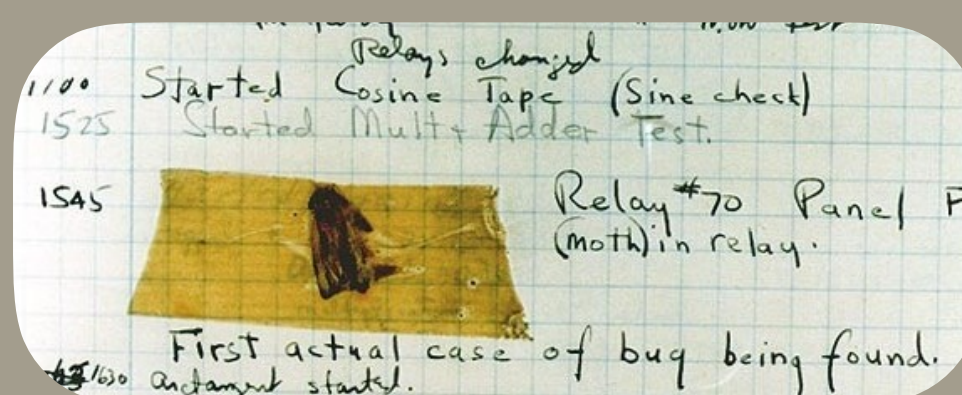 Relays changed
1100 Started Cosine Tape (Sine check)
1525 Started Mult + Adder Test.
1545 Relay #70 Panel F
(moth) in relay.
First actual case of bug being found.
1630 antangent started.